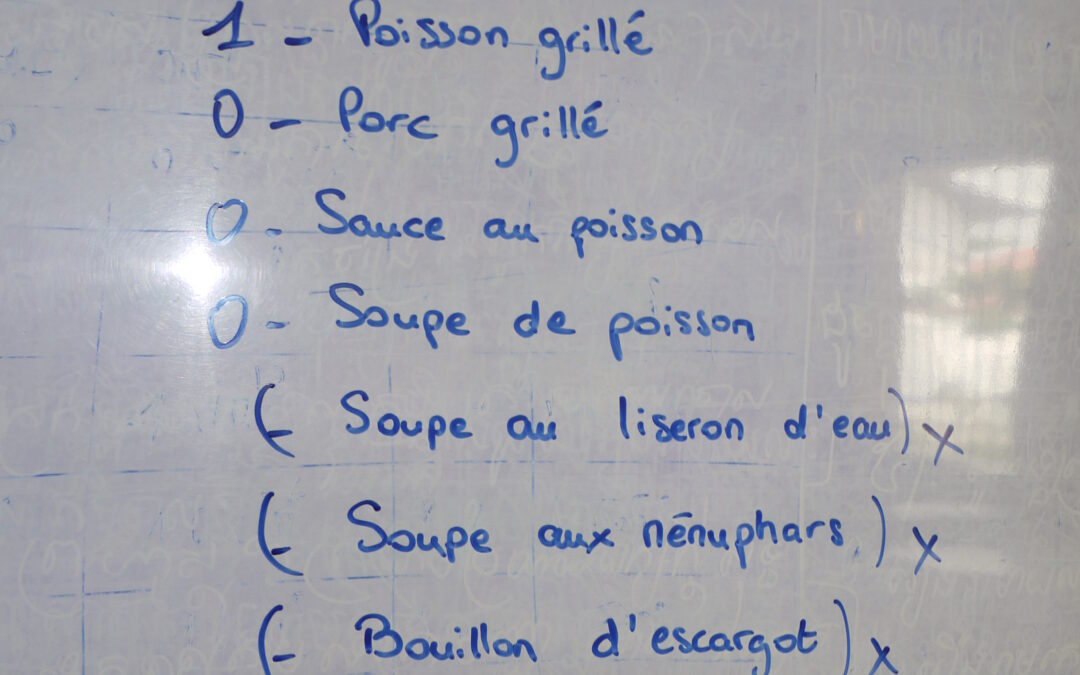 1 - Poisson grillé
0 - Porc grillé
0 - Sauce au poisson
0 - Soupe de poisson
(- Soupe au liseron d'eau) x
(- Soupe aux nénuphars.) x
(- Bouillon d'escargot) x